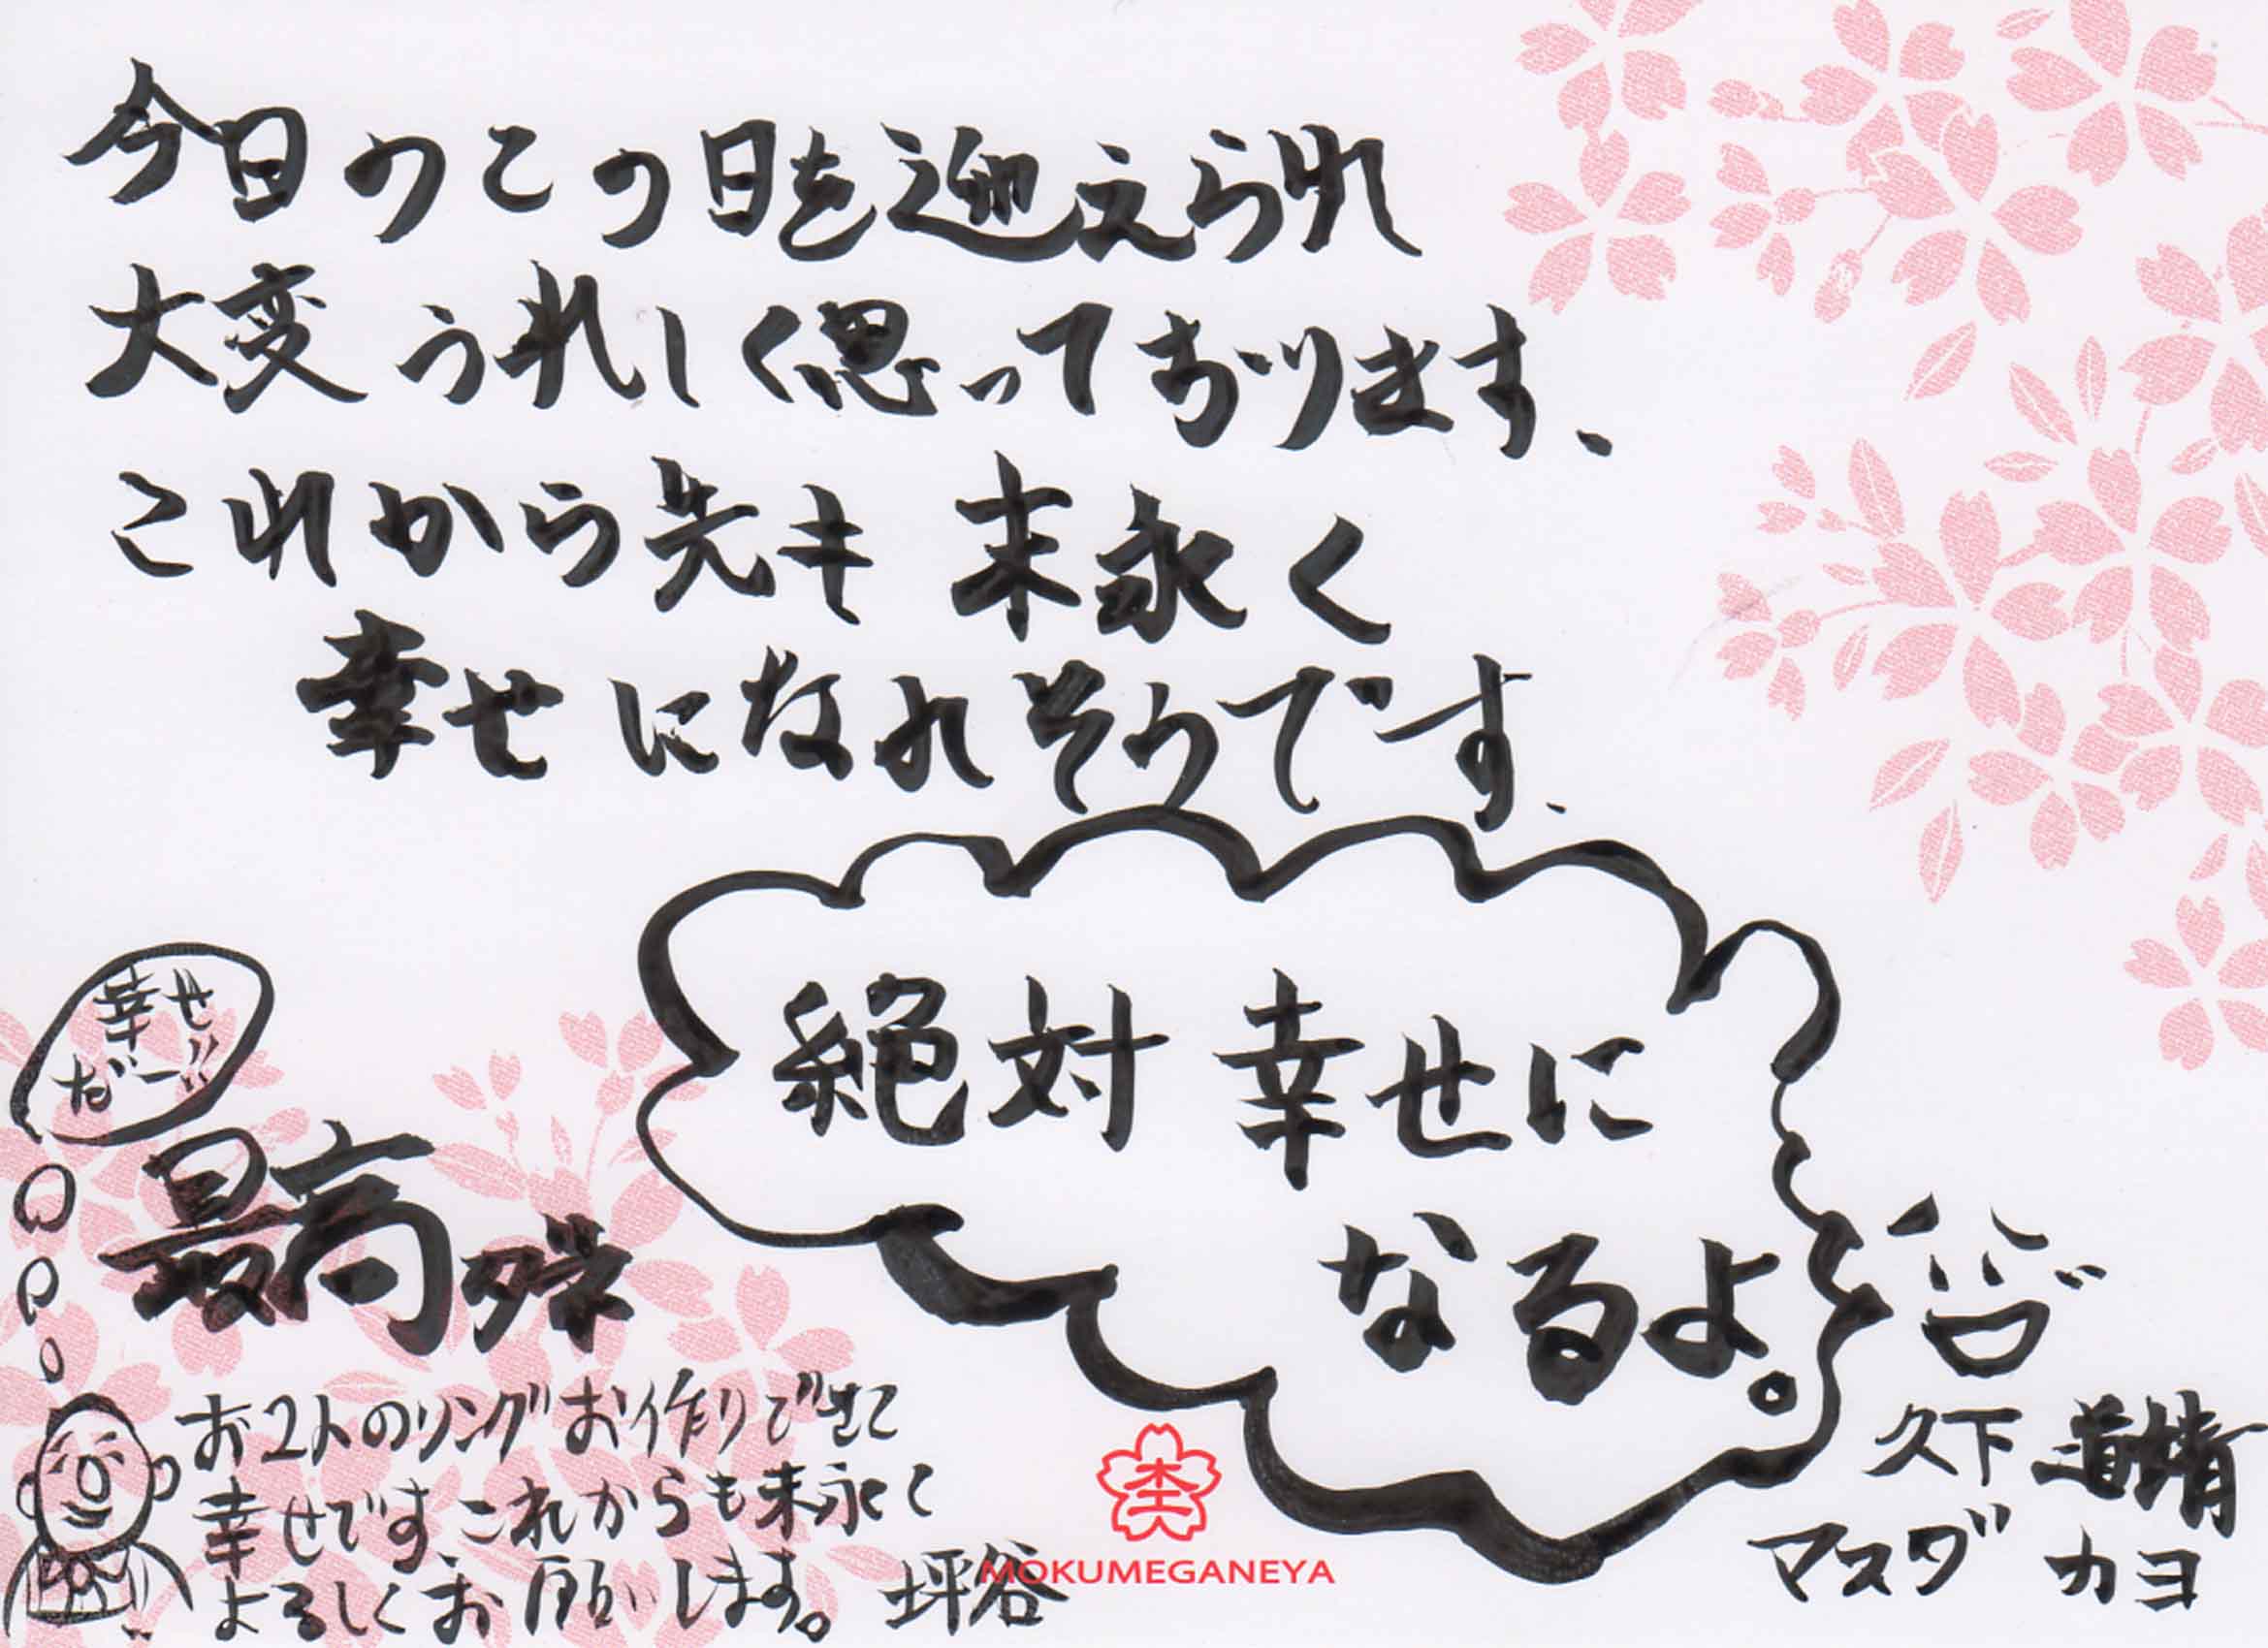 今日のこの日を迎えられ
大変うれしく思っております、
これから先も 末永く
幸せになれそうです、
絶対 幸せに
なるよ。
久下 道靖
マスダ カヨ
幸せ
だー!!
最高
お2人のリングお作りできて
幸せです これからも末永く
よろしくお願いします。 坪谷
MOKUMEGANEYA